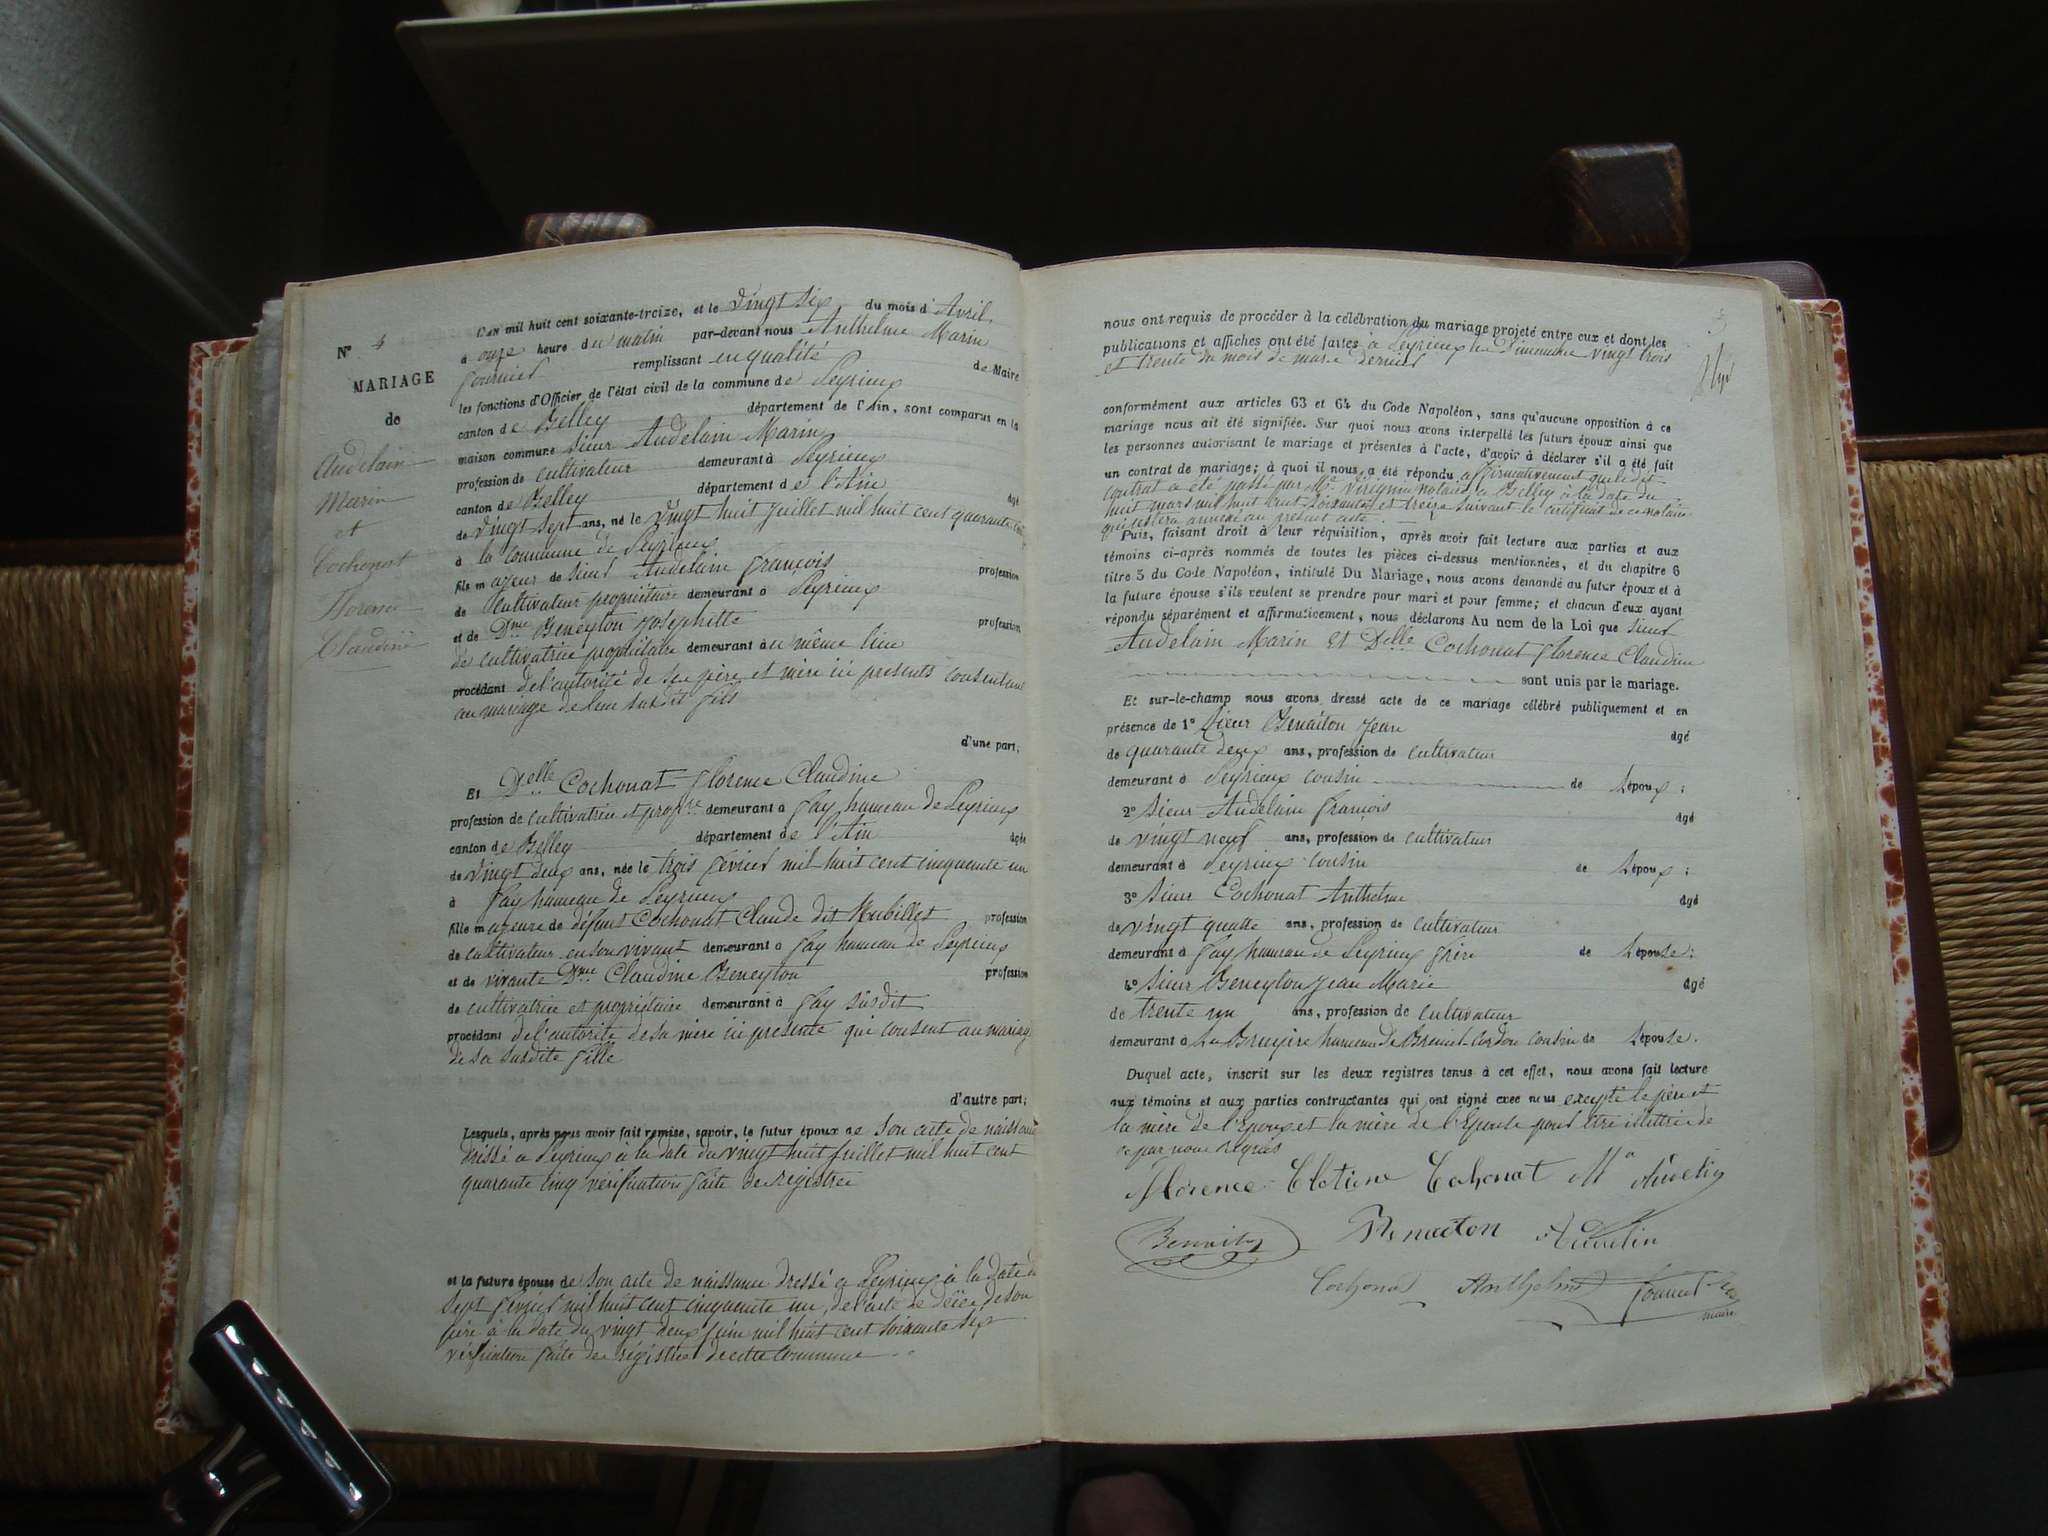 N° 4
MARIAGE
de
Audelain
Marin
et
Cochonat
Florence
Claudine
L'an mil huit cent soixante-treize, et le vingt six du mois d'Avril
à onze heure du matin par-devant nous Anthelme Marin
Fournier remplissant en qualité de Maire
les fonctions d'Officier de l'état civil de la commune de Peyrieux
canton de Belley département de l'Ain, sont comparus en la
maison commune sieur Audelain Marin
profession de cultivateur demeurant à Peyrieux
canton de Belley département de l'Ain âgé
de vingt sept ans, né le vingt huit juillet mil huit cent quarante cinq
à la commune de Peyrieux
fils majeur de sieur Audelain François profession
de cultivateur propriétaire demeurant à Peyrieux
et de Dme Beneyton Josephitte profession
de cultivatrice propriétaire demeurant au même lieu
procédant de l'autorité de ses père et mère ici présents consentant
au mariage de leur susdit fils
d'une part;
Et Delle Cochonat Florence Claudine
profession de cultivatrice et propre demeurant à Fay hameau de Peyrieux
canton de Belley département de l'Ain âgée
de vingt deux ans, née le trois fevrier mil huit cent cinquante un
à Fay hameau de Peyrieux
fille majeure de défunt Cochonat Claude dit Rubillet profession
de cultivateur en son vivant demeurant à Fay hameau de Peyrieux
et de vivante Dme Claudine Beneyton profession
de cultivatrice et propriétaire demeurant à Fay susdit
procédant de l'autorité de sa mère ici présente qui consent au mariage
de sa susdite fille
d'autre part;
Lesquels, après nous avoir fait remise, savoir, le futur époux de son acte de naissance
dressé a Peyrieux à la date du vingt huit juillet mil huit cent
quarante cinq vérification faite des régistres
et la future épouse de son acte de naissance dressé a Peyrieux à la date du
sept fevrier mil huit cent cinquante un, de l'acte de décès de son
père à la date du vingt deux juin mil huit cent soixante sept
vérification faite des régistres de cette commune
3
nous ont requis de procéder à la célébration du mariage projeté entre eux et dont les
publications et affiches ont été faites a Peyrieux les Dimanche vingt trois
et trente du mois de mars dernier
conformément aux articles 63 et 64 du Code Napoléon, sans qu'aucune opposition à ce
mariage nous ait été signifiée. Sur quoi nous avons interpellé les futurs époux ainsi que
les personnes autorisant le mariage et présentes à l'acte, d'avoir à déclarer s'il a été fait
un contrat de mariage; à quoi il nous a été répondu affirmativement que le dit
contrat a été passé par Me notaire a Belley à la date du
huit mars mil huit cent soixante et treize suivant le certificat de ce notaire
qui restera annexé au présent acte.
Puis, faisant droit à leur réquisition, après avoir fait lecture aux parties et aux
témoins ci-après nommés de toutes les pièces ci-dessus mentionnées, et du chapitre 6
titre 5 du Code Napoléon, intitulé Du Mariage, nous avons demandé au futur époux et à
la future épouse s'ils veulent se prendre pour mari et pour femme; et chacun d'eux ayant
répondu séparément et affirmativement, nous déclarons Au nom de la Loi que sieur
Audelain Marin et Delle Cochonat Florence Claudine
sont unis par le mariage.
Et sur-le-champ nous avons dressé acte de ce mariage célébré publiquement et en
présence de 1° sieur Benaiton Jean âgé
de quarante deux ans, profession de cultivateur
demeurant à Peyrieux cousin de l'époux;
2° sieur Audelain François âgé
de vingt neuf ans, profession de cultivateur
demeurant à Peyrieux cousin de l'époux;
3° sieur Cochonat Anthelme âgé
de vingt quatre ans, profession de cultivateur
demeurant à Fay hameau de Peyrieux frère de l'épouse;
4° sieur Beneyton Jean Marie âgé
de trente un ans, profession de cultivateur
demeurant à La Bruyère hameau de Bremier-Cordon cousin de l'épouse.
Duquel acte, inscrit sur les deux registres tenus à cet effet, nous avons fait lecture
aux témoins et aux parties contractantes qui ont signé avec nous excepté le père et
la mère de l'Epoux et la mère de l'Epouse pour être illettré de
ce par nous requis
Florence Clotine Cochonat Mn Audelin
Benaiton Benaiton Audelin
Cochonat Anthelme Fournier
maire